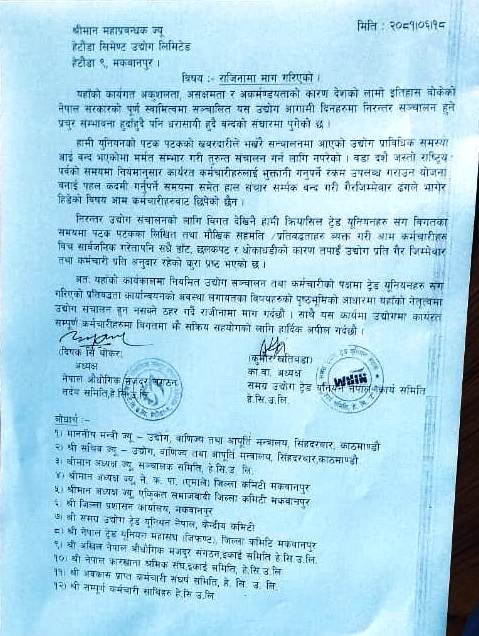 श्रीमान महाप्रबन्धक ज्यू
मिति : २०८१।०६।१८
हेटौंडा सिमेण्ट उद्योग लिमिटेड
हेटौंडा ९, मकवानपुर ।
विषय :- राजिनामा माग गरिएको ।
यहाँको कार्यगत अकूशलता, असक्षमता र अकर्मण्यताको कारण देशको लामो इतिहास बोकेको
नेपाल सरकारको पूर्ण स्वामित्वमा सञ्चालित यस उद्योग आगामी दिनहरुमा निरन्तर सञ्चालन हुने
प्रचुर सम्भावना हुदाहुदै पनि धरासायी हुदै बन्दको संघारमा पुगेको छ ।
हामी युनियनको पटक पटकको खबरदारीले भर्खरै सन्चालनमा आएको उद्योग प्राविधिक समस्या
आई बन्द भएकोमा मर्मत संम्भार गरी तुरुन्त संचालन गर्न लागि नपरेको । वडा दशै जस्तो राष्ट्रिय
पर्वको समयमा नियमानुसार कार्यरत कर्मचारीहरुलाई भुक्तानी गनुपर्ने रकम उपलब्ध गराउन योजना
बनाई पहल कदमी गर्नुपर्ने समयमा समेत हाल संचार सर्म्पक बन्द गरी गैरजिम्मेबार ढंगले भागेर
हिडेको विषय आम कर्मचारीहरुबाट छिपेको छैन ।
निरन्तर उद्योग संचालनको लागि विगत देखिनै हामी क्रियासिल ट्रेड यूनियनहरु संग विगतका
समयमा पटक पटकका लिखित तथा मौखिक सहमति /प्रतिबद्धताहरु व्यक्त गरी आम कर्मचारीहरु
विच सार्वजनिक गरेतापनि सधै ढाँट, छलकपट र धोकाधडीको कारण तपाई उद्योग प्रति गैर जिम्मेवार
तथा कर्मचारी प्रति अनुदार रहेको कुरा प्रष्ट भएको छ ।
अत: यहाँको कार्यकालमा नियमित उद्योग सञ्चालन तथा कर्मचारीको पक्षमा ट्रेड यूनियनहरु संग
गरिएको प्रतिवद्धता कार्यान्वयनको अवस्था लगायतका विषयहरुको पृष्ठभूमिको आधारमा यहाँको नेतृत्वमा
उद्योग संचालन हुन नसक्ने ठहर गर्दै राजीनामा माग गर्दछौ । साथै यस कार्यमा उद्योगमा कार्यरत
सम्पूर्ण कर्मचारीहरुमा विगतमा झै सक्रिय सहयोगको लागि हार्दिक अपील गर्दछौं ।
(दिपक सिं थोकर)
अध्यक्ष
नेपाल औधोगिक मजदुर संगठन
तदर्थ समिति,हे.सि.उ.लि.
(कुमार खतिवडा)
का.वा. अध्यक्ष
समग्र उद्योग ट्रेड यूनियन नेपाल कार्य समिति
हे.सि.उ.लि.
वोधार्थ :-
१) माननीय मन्त्री ज्यू - उद्योग, वाणिज्य तथा आपूर्ति मन्त्रालय, सिंहदरबार, काठमाण्डौ
२) श्री सचिव ज्यू - उद्योग, वाणिज्य तथा आपूर्ति मन्त्रालय, सिंहदरबार,काठमाण्डौ
३) श्रीमान अध्यक्ष ज्यू, सञ्चालक समिति, हे.सि.उ लि.
४) श्रीमान अध्यक्ष ज्यू, ने. क. पा. (एमाले) जिल्ला कमिटी मकवानपुर
५) श्रीमान अध्यक्ष ज्यू, एकिकृत समाजबादी जिल्ला कमिटी मकवानपुर
६) श्री जिल्ला प्रशासन कार्यालय, मकवानपुर
७) श्री समग्र उद्योग ट्रेड यूनियन नेपाल, केन्द्रीय कमिटी
८) श्री नेपाल ट्रेड युनियन महासंघ (जिफण्ट), जिल्ला कमिटि मकवानपुर
९) श्री अखिल नेपाल औधोगिक मजदुर संगठन,इकाई समिति हे.सि.उ.लि.
१०) श्री नेपाल कारखाना श्रमिक संघ,इकाई समिति, हे.सि.उ.लि
११) श्री अवकास प्राप्त कर्मचारी संघर्ष समिति, हे. सि. उ. लि.
१२) श्री सम्पूर्ण कर्मचारी साथिहरु हे.सि.उ.लि